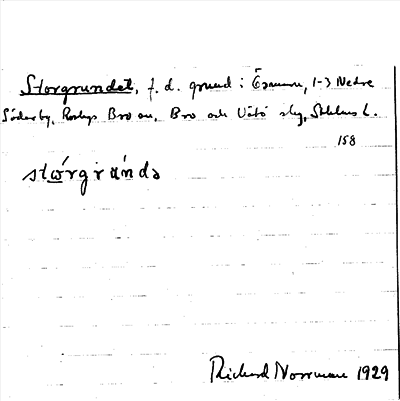 Storgrundet, f. d. grund i Ösmaren, 1-3 Nedre
Söderby, Bro sn, Bro och Vätö slg, Sthlms l.
158
stǫ́rgrùndə
Richard Norrman 1929